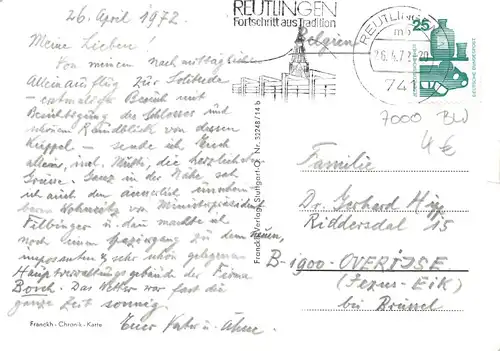 26. April 1972
Meine Lieben!
Von meinem nachmittäglichen
Alleinausflug zur Solitude
– erstmaliger Besuch mit
Besichtigung des Schlosses und
schönem Rundblick von dessen
Kuppel – sende ich Euch
allein, incl. Mutti, die herzlichsten
Grüsse. Ganz in der Nähe sah
ich auch den
Wohnsitz von Ministerpräsident
Filbinger u. dann machte ich
noch einen Spaziergang zu dem neuen,
imposanten & sehr schön gelegenen
Hauptverwaltungsgebäude der Firma
Bosch. Das Wetter war fast die
ganze Zeit sonnig.
Euer Vater u.
Franckh - Chronik - Karte
Franckh Verlag Stuttgart-O Nr. 33248/14 b
REUTLINGEN
Fortschritt aus Tradition
REUTLINGEN
26.4.72-20
741
25
DEUTSCHE BUNDESPOST
Belgien
7000 BW
4€
Familie
Dr. Gerhard
Riddersdal 15
B-1900-OVERIJSE
(Jezus-Eik)
bei Brüssel